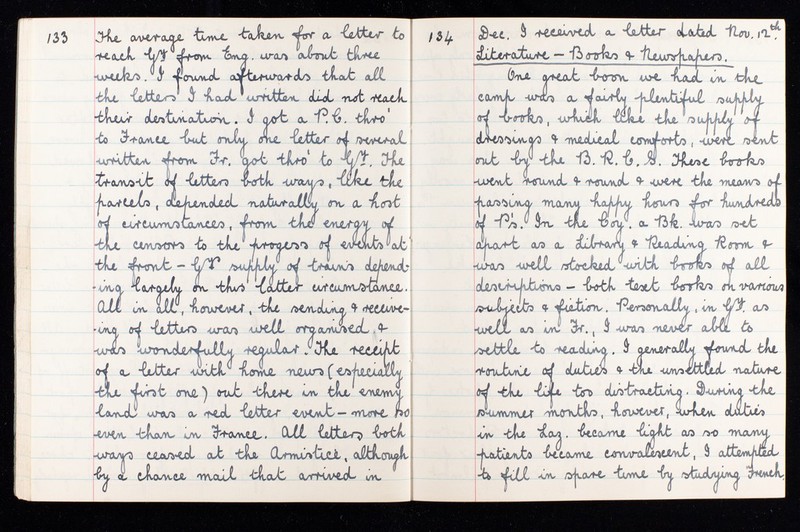 133
The average time taken for a letter to
reach Gy. from Eng. was about three
weeks. I found afterwards that all
the letters I had written did not reach
their destination. I got a P.C. thro'
to France but only one letter of several
written from Fr. got thro' to Gy. The
transit of letters both ways, like the
parcels, depended naturally on a host
of circumstances, from the energy of
the censors to the progess of events at
the front – Gy's supply of trains depend-
-ing largely on this latter circumstance.
All in all, however, the sending & receive-
-ing of letters was well organised, &
was wonderfully regular. The receipt
of a letter with home news (especially
the first one) out there in the enemy
land was a red letter event – more so
even than in France. All letters both
ways ceased at the Armistice, although
by a chance mail that arrived in
134
Dec. I received a letter dated Nov. 12th.
Literature – Books & Newspapers.
One great boon we had in the
camp was a fairly plentiful supply
of books, which like the supply of
dressings & medical comforts, were sent
out by the B.R.C.S. These books
went round & round & were the means of
passing many happy hours for hundreds
of P's. In the Coy. a Bk. was set
apart as a Library & Reading Room &
was well stocked with books of all
descriptions – both text books on various
subjects & fiction. Personally, in Gy. as
well as in Fr., I was never able to
settle to reading. I generally found the
routine of duties & the unsettled nature
of the life too distracting. During the
summer months, however, when duties
in the Laz. became light as so many
patients became convalescent, I attempted
to fill in spare time by studying French